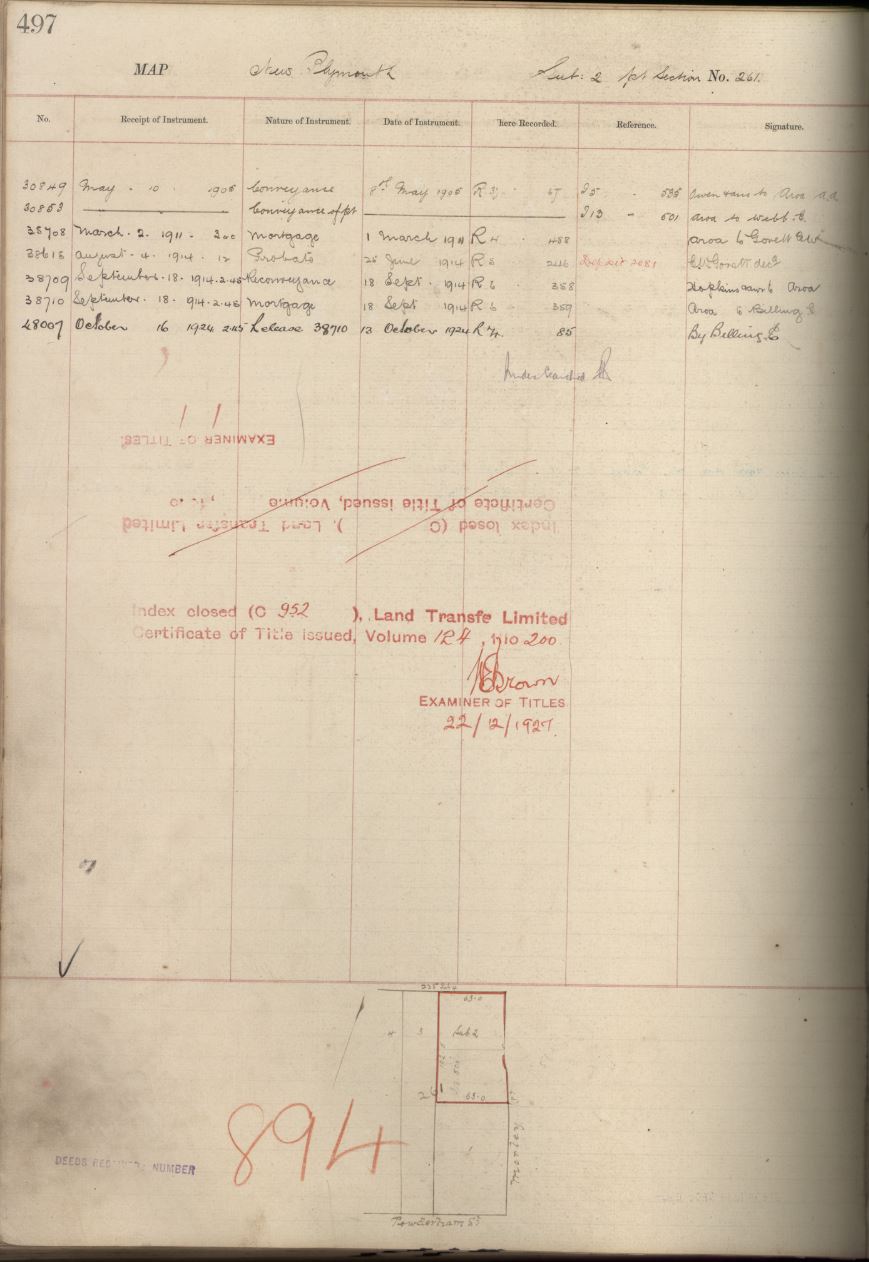 497
MAP New Plymouth Sub: 2 pt Section No. 261.
No. Receipt of Instrument. Nature of Instrument. Date of Instrument. here Recorded. Reference. Signature.
30849 May 10 1905 Conveyance 8th May 1905 R 67 I5 535 Owen to Aroa
30853 Conveyance of pt I13 601 Aroa to Webb
35708 March 2. 1911 Mortgage 1 March 1911 R 4 488 Aroa to Govett
38615 August 4. 1914 12 Probate 25 June 1914 R 5 246 Deposit 2081 Govett decd
38709 September 18. 1914. 2.45 Reconveyance 18 Sept. 1914 R 6 358 Hopkins to Aroa
38710 September. 18. 1914. 2.45 Mortgage 18 Sept 1914 R 6 359 Aroa to Belling
48007 October 16 1924 2.45 Release 38710 13 October 1924 R 85 By Belling
Index Searched
EXAMINER OF TITLES.
Certificate of Title issued, Volume
Index losed (C ), Land Transfer Limited
Index closed (C 952 ), Land Transfe Limited
Certificate of Title issued, Volume 124, 200
Brown
EXAMINER OF TITLES
22/12/1927.
63.0
4 3 Sub 2
261
63.0
Morley St
894
DEEDS NUMBER
1
Powderham St